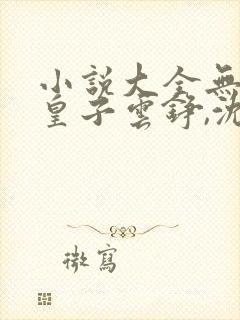 小說大全無
皇子雲錚,沈
微寫